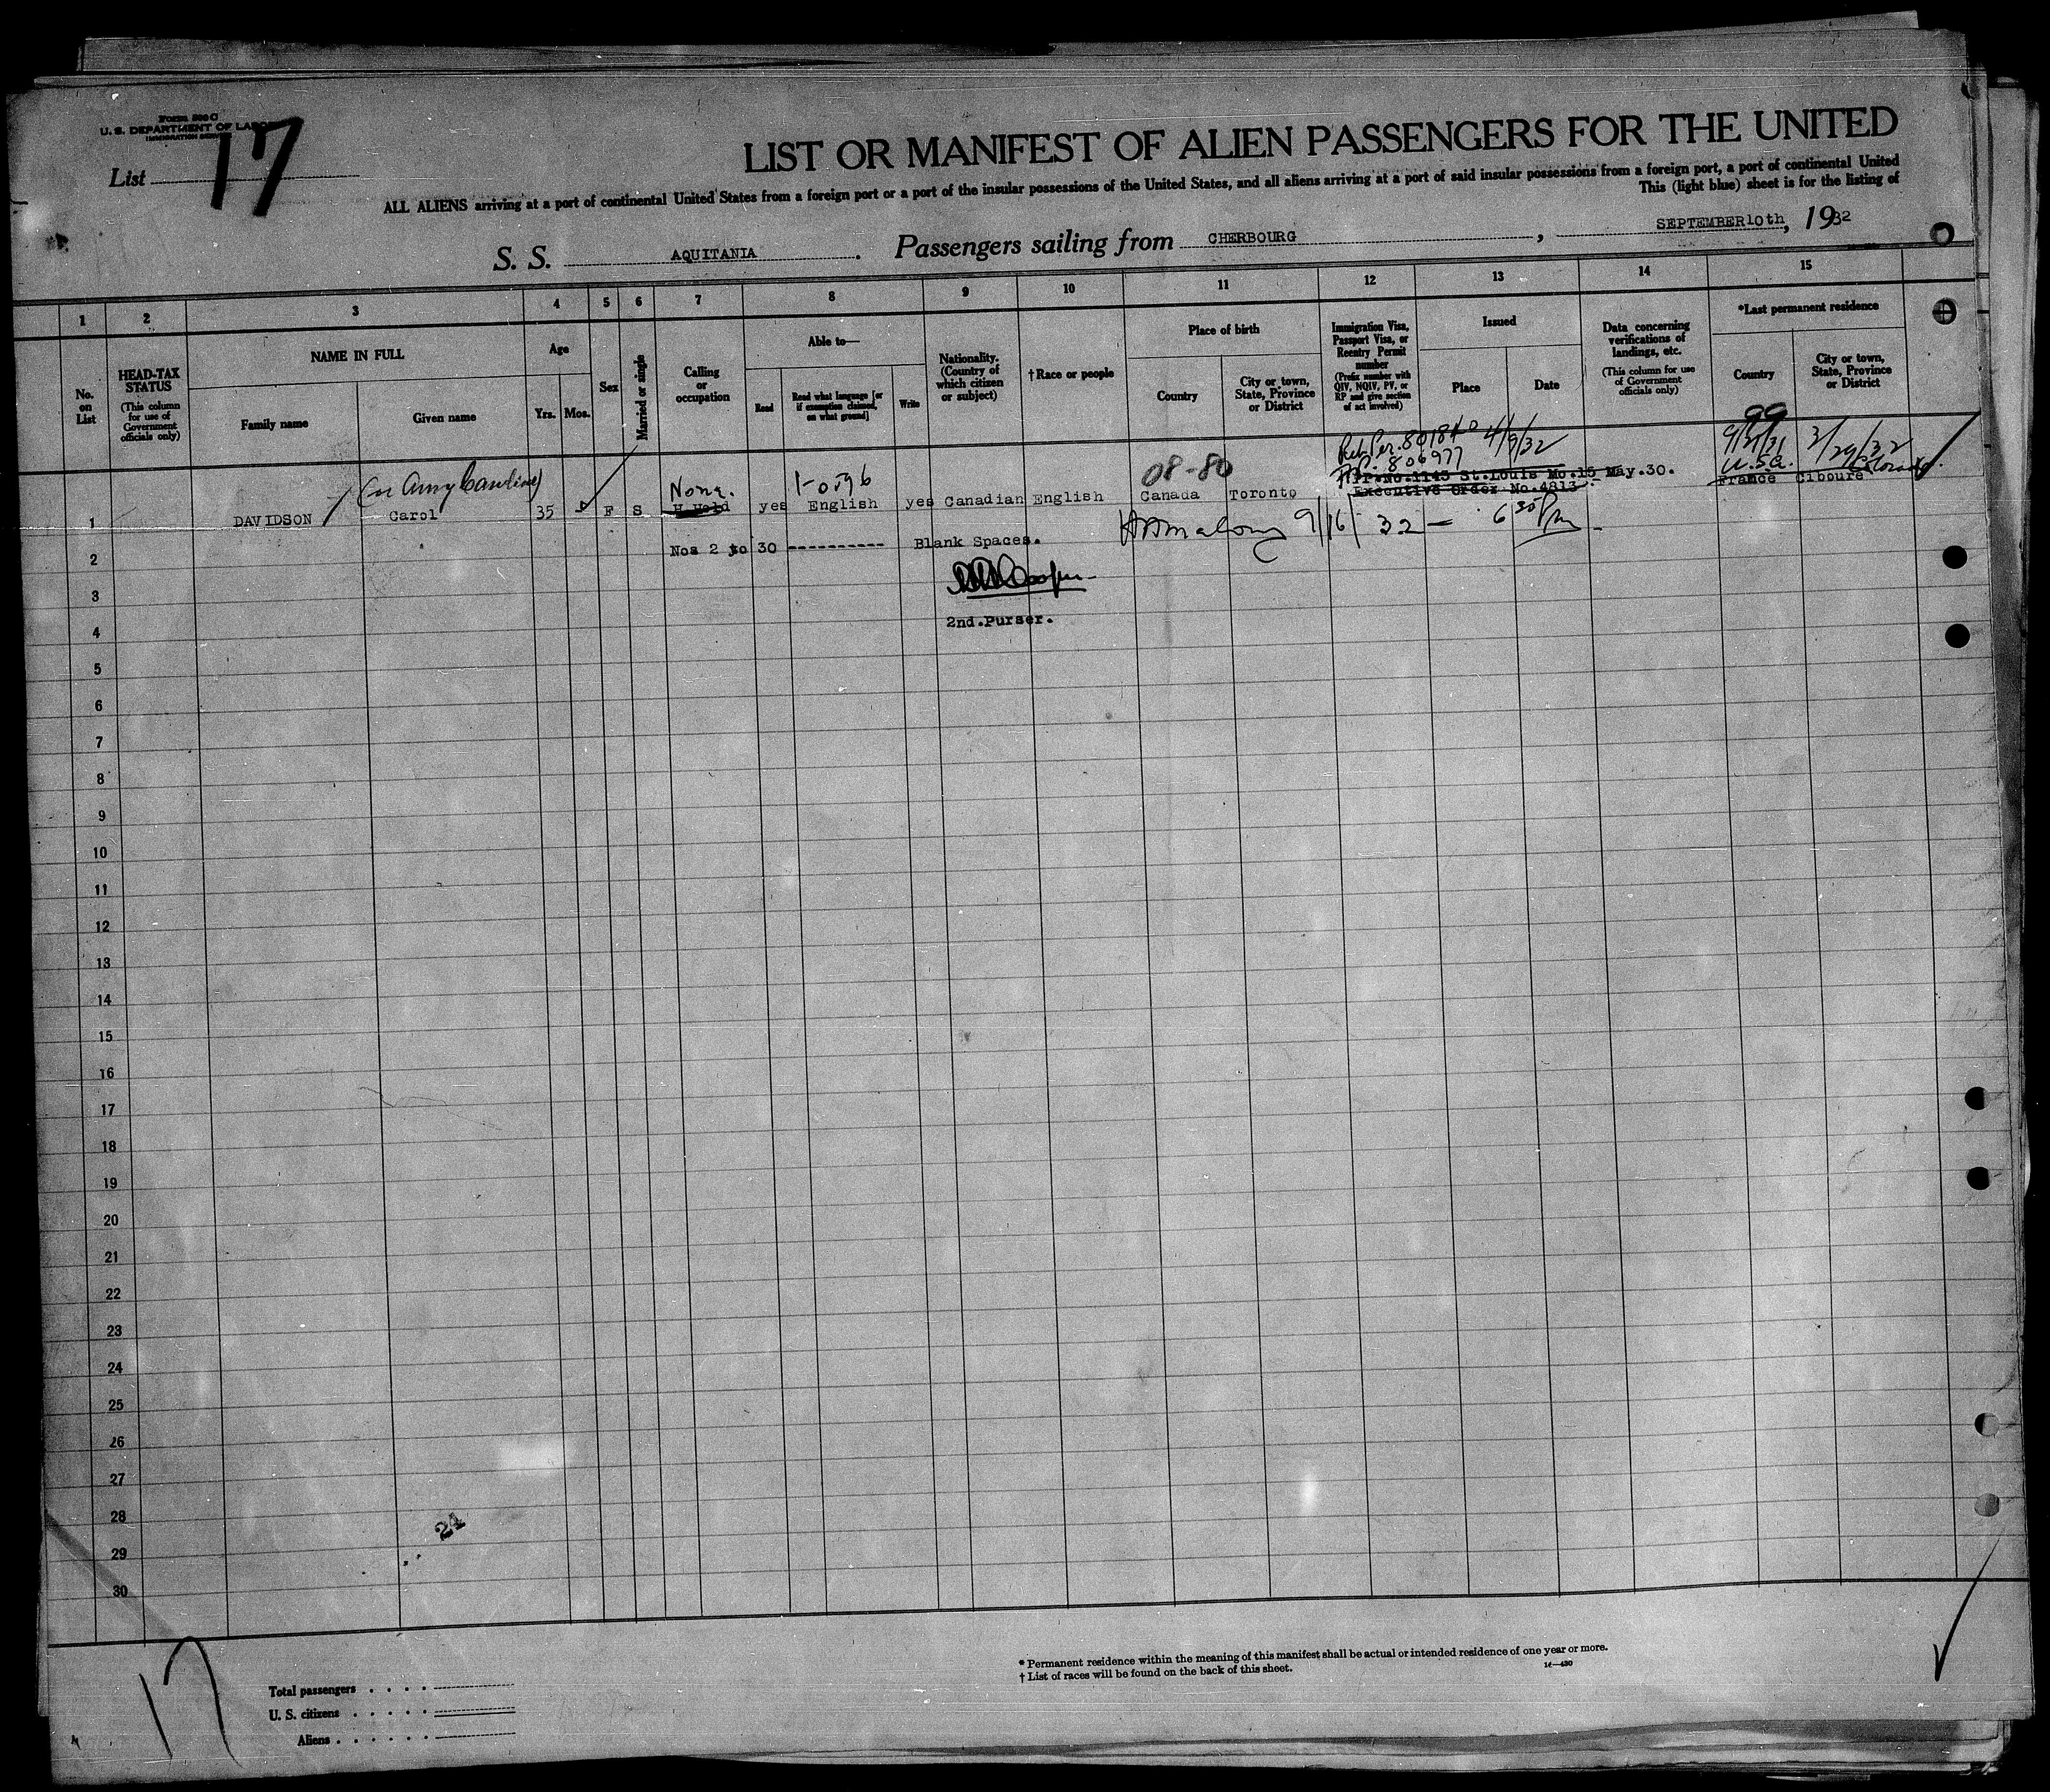 Form 500 C
U. S. DEPARTMENT OF LABOR
IMMIGRATION SERVICE
List 17
LIST OR MANIFEST OF ALIEN PASSENGERS FOR THE UNITED
ALL ALIENS arriving at a port of continental United States from a foreign port or a port of the insular possessions of the United States, and all aliens arriving at a port of said insular possessions from a foreign port, a port of continental United
This (light blue) sheet is for the listing of
S. S. AQUITANIA. Passengers sailing from CHERBOURG, SEPTEMBER 10th, 1932
1 2 3 4 5 6 7 8 9 10 11 12 13 14 15
No. on List
HEAD-TAX STATUS
(This column for use of Government officials only)
NAME IN FULL
Family name
Given name
Age
Yrs. Mos.
Sex
Married or single
Calling or occupation
Able to—
Read
Read what language [or if exemption claimed, on what ground]
Write
Nationality. (Country of which citizen or subject)
†Race or people
Place of birth
Country
City or town, State, Province or District
Immigration Visa, Passport Visa, or Reentry Permit number
(Prefix number with QIV, NQIV, PV, or RP and give section of act involved)
Issued
Place
Date
Data concerning verifications of landings, etc.
(This column for use of Government officials only)
*Last permanent residence
Country
City or town, State, Province or District
99
Ret. Per. 801840 4/9/32
9/21/31 3/29/32
806977
U.S.A. Colorado.
(or Amy Caroline)
None. 1-0596 08-80
P.P.No.1143 St.Louis Mo.15 May.30.
Executive Order No.4813.
1 DAVIDSON Carol 35 F S H.Hold yes English yes Canadian English Canada Toronto France Ciboure
9/16/32 — 6 30 Pm
Nos 2 to 30 ---------- Blank Spaces.
Cooper
2nd.Purser.
2
3
4
5
6
7
8
9
10
11
12
13
14
15
16
17
18
19
20
21
22
23
24
25
26
27
28
29
30
24
17
Total passengers
U. S. citizens
Aliens
* Permanent residence within the meaning of this manifest shall be actual or intended residence of one year or more.
† List of races will be found on the back of this sheet.
14—430